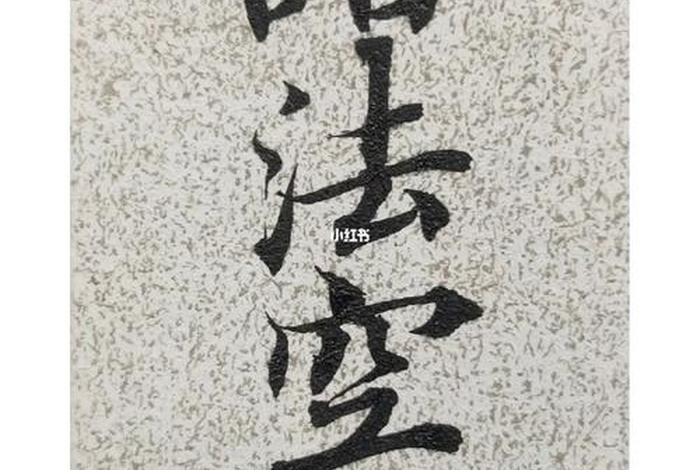 法空
小红书